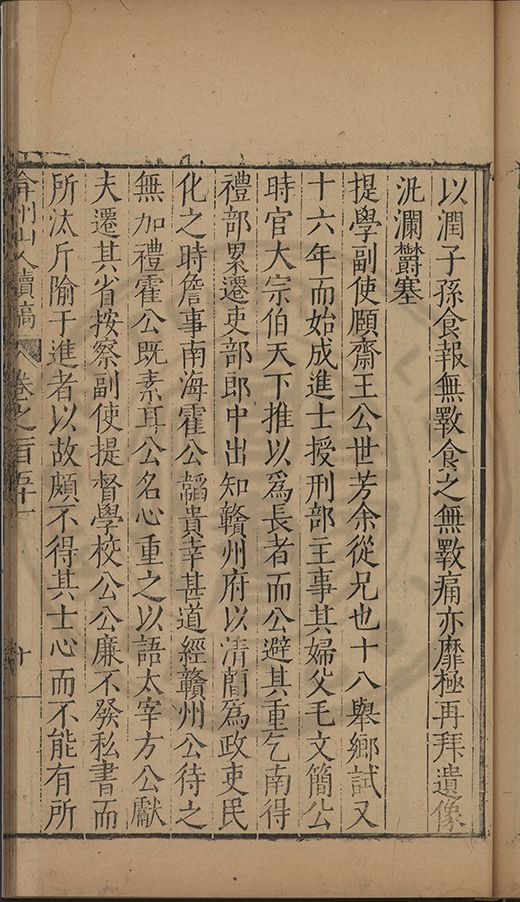 以潤子孫食報無斁食之無斁痛亦靡極再拜遺像
汍瀾欝塞
提學副使頤齋王公世芳余從兄也十八舉鄉試又
十六年而始成進士授刑部主事其婦父毛文簡公
時官大宗伯天下推以爲長者而公避其重乞南得
禮部累遷吏部郎中出知贛州府以清簡爲政吏民
化之時詹事南海霍公韜貴幸甚道經贛州公待之
無加禮霍公旣素耳公名心重之以語太宰方公獻
夫遷其省按察副使提督學校公公廉不發私書而
所汰斥隃于進者以故頗不得其士心而不能有所
弇州山人續稿 卷之一百五十一 十